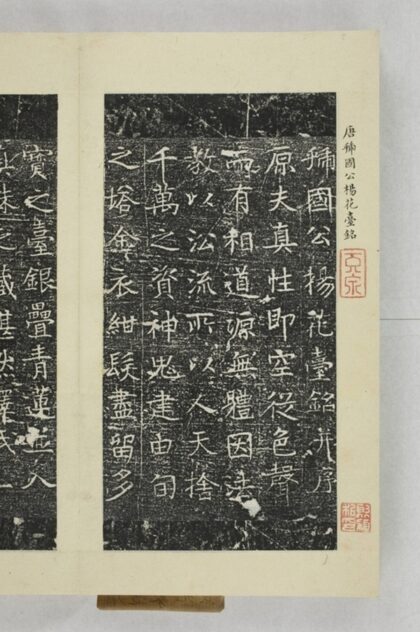 唐虢國公楊花臺銘
虢國公楊花臺銘并序
原夫真性即空從色聲
而有相道源無體因法
教以沿流所以人天捨
千萬之資神鬼建由旬
之塔金衣紺髮盡留多
寶之臺銀疊青蓮並入
珠之藏